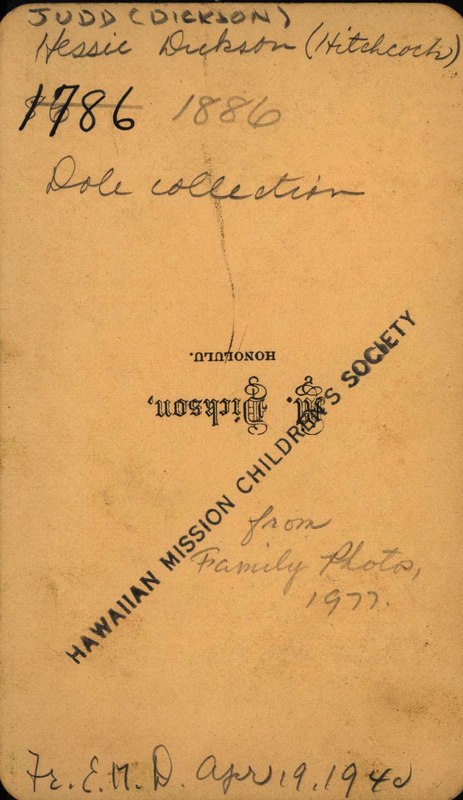 JUDD (DICKSON)
Hessie Dickson (Hitchcock)
1786 1886
Dole collection
HONOLULU.
M. Dickson,
HAWAIIAN MISSION CHILDREN'S SOCIETY
from
Family Photos,
1977.
Fr. E.M.D. Apr 19, 1940